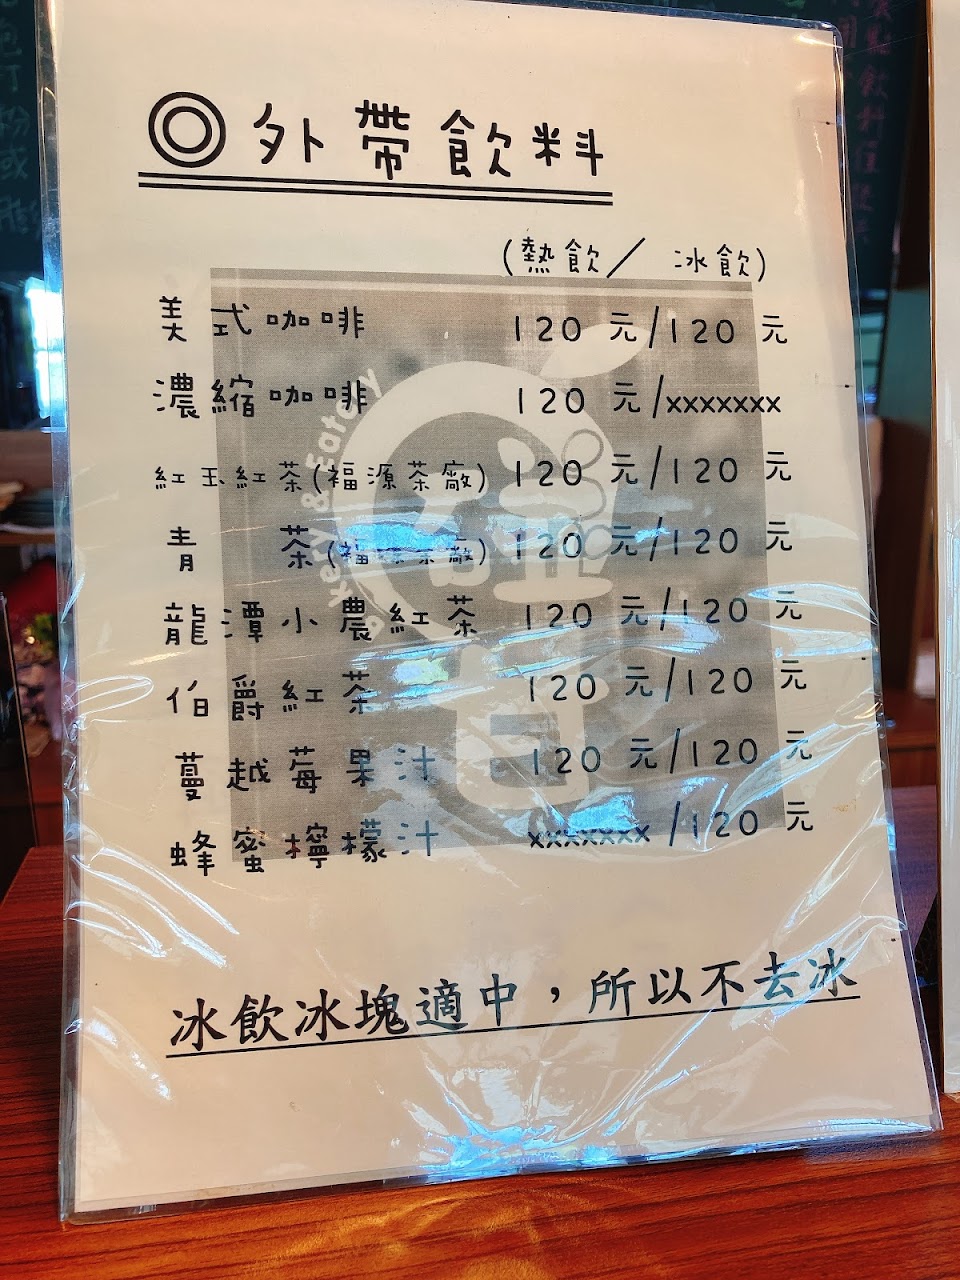 ◎外帶飲料
(熱飲/ 冰飲)
美式咖啡 120 元/120 元
濃縮咖啡 120 元/xxxxxxx
紅玉紅茶(福源茶廠) 120 元/120 元
青 茶(福源茶廠) 120 元/120 元
龍潭小農紅茶 120 元/120 元
伯爵紅茶 120 元/120 元
蔓越莓果汁 120 元/120 元
蜂蜜檸檬汁 xxxxxxx /120 元
冰飲冰塊適中，所以不去冰